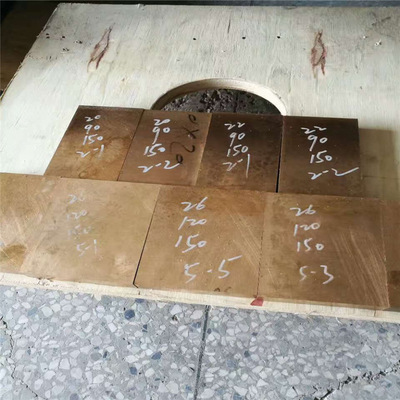 20
90
150
2-1
20
90
150
2-2
22
90
150
2-1
22
90
150
2-2
26
120
150
5-1
26
120
150
5-5
26
120
150
5-3